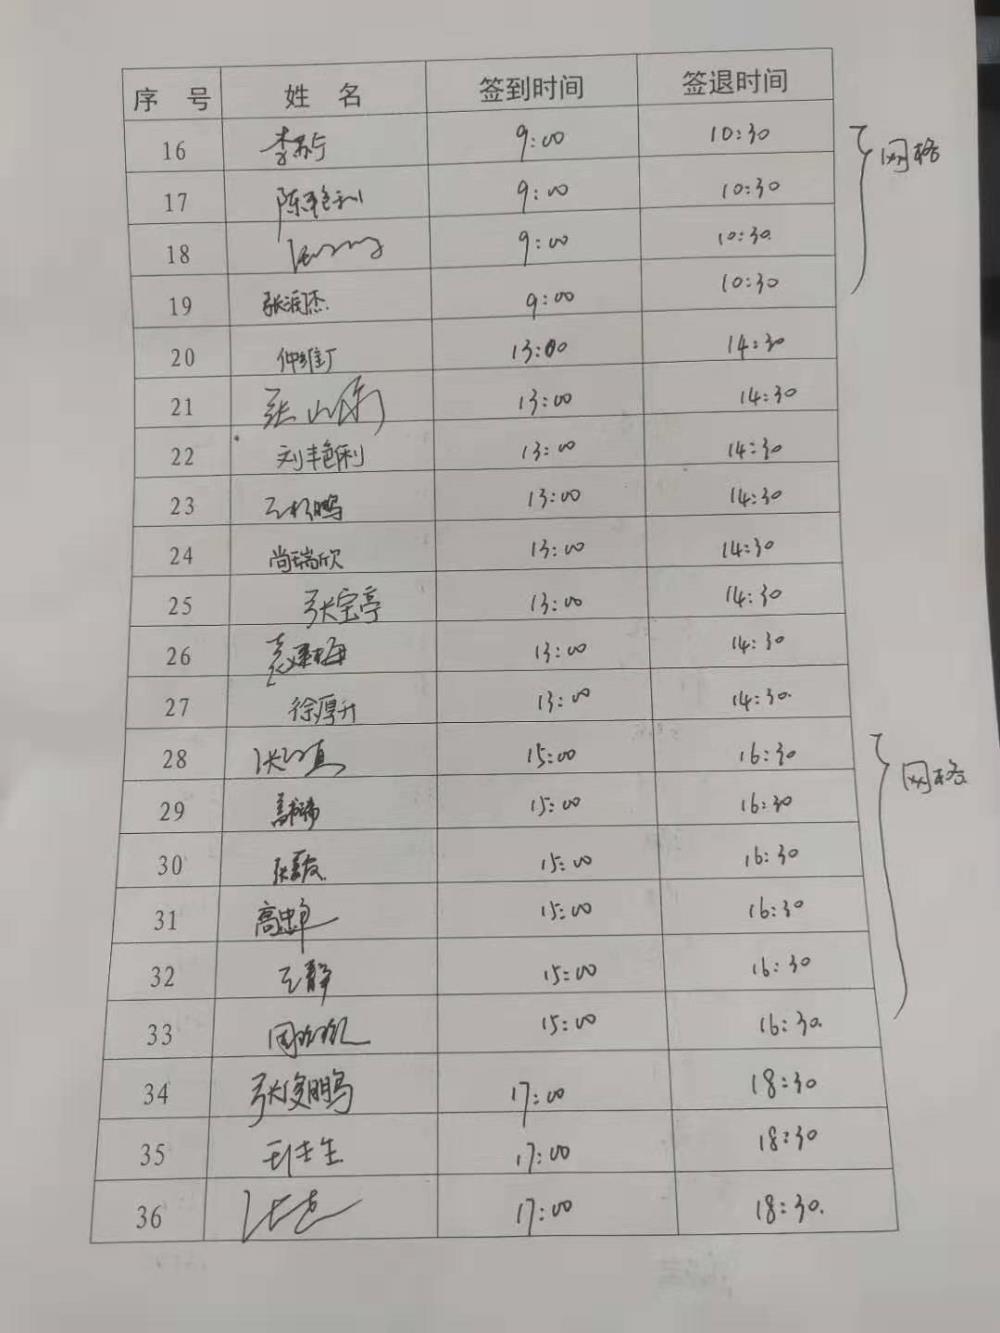 序 号 姓 名 签到时间 签退时间
16 李苏宁 9:00 10:30 网格
17 陈艳利 9:00 10:30
18 9:00 10:30.
19 张润杰. 9:00 10:30
20 仲维丁 13:00 14:30
21 张山 13:00 14:30
22 刘艳利 13:00 14:30
23 王松鹏 13:00 14:30
24 尚瑞欣 13:00 14:30
25 张宝亭 13:00 14:30
26 袁建梅 13:00 14:30
27 徐厚升 13:00 14:30.
28 15:00 16:30 网格
29 15:00 16:30
30 15:00 16:30
31 15:00 16:30
32 王静 15:00 16:30
33 15:00 16:30.
34 张俊鹏 17:00 18:30
35 17:00 18:30
36 17:00 18:30.